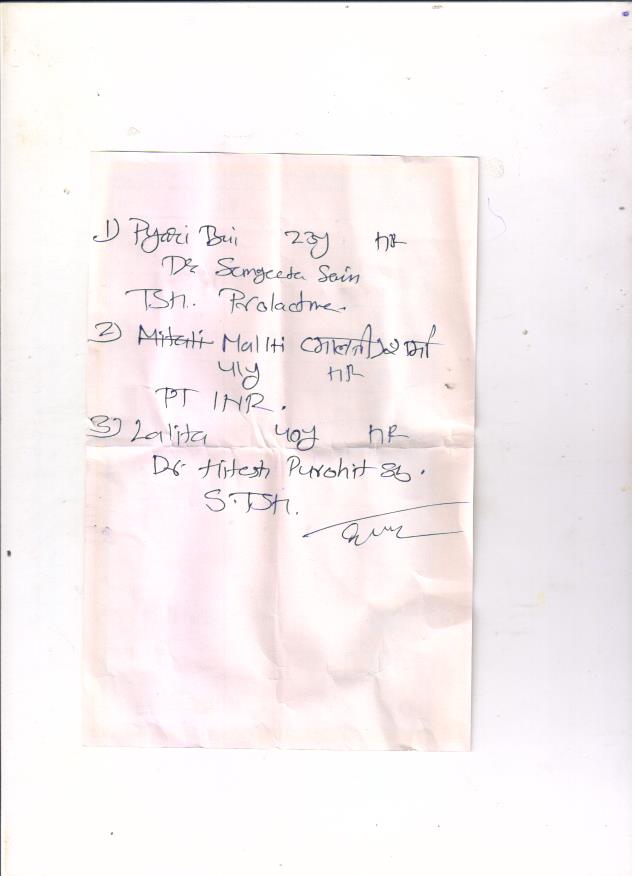 1) Pyari Bai 23y
Dr Sangeeta Sain
TSH. Prolactine.
2) Mitali Malti मालती शर्मा
41y
PT INR.
3) Lalita 40y
Dr. Hitesh Purohit Sb.
S.TSH.